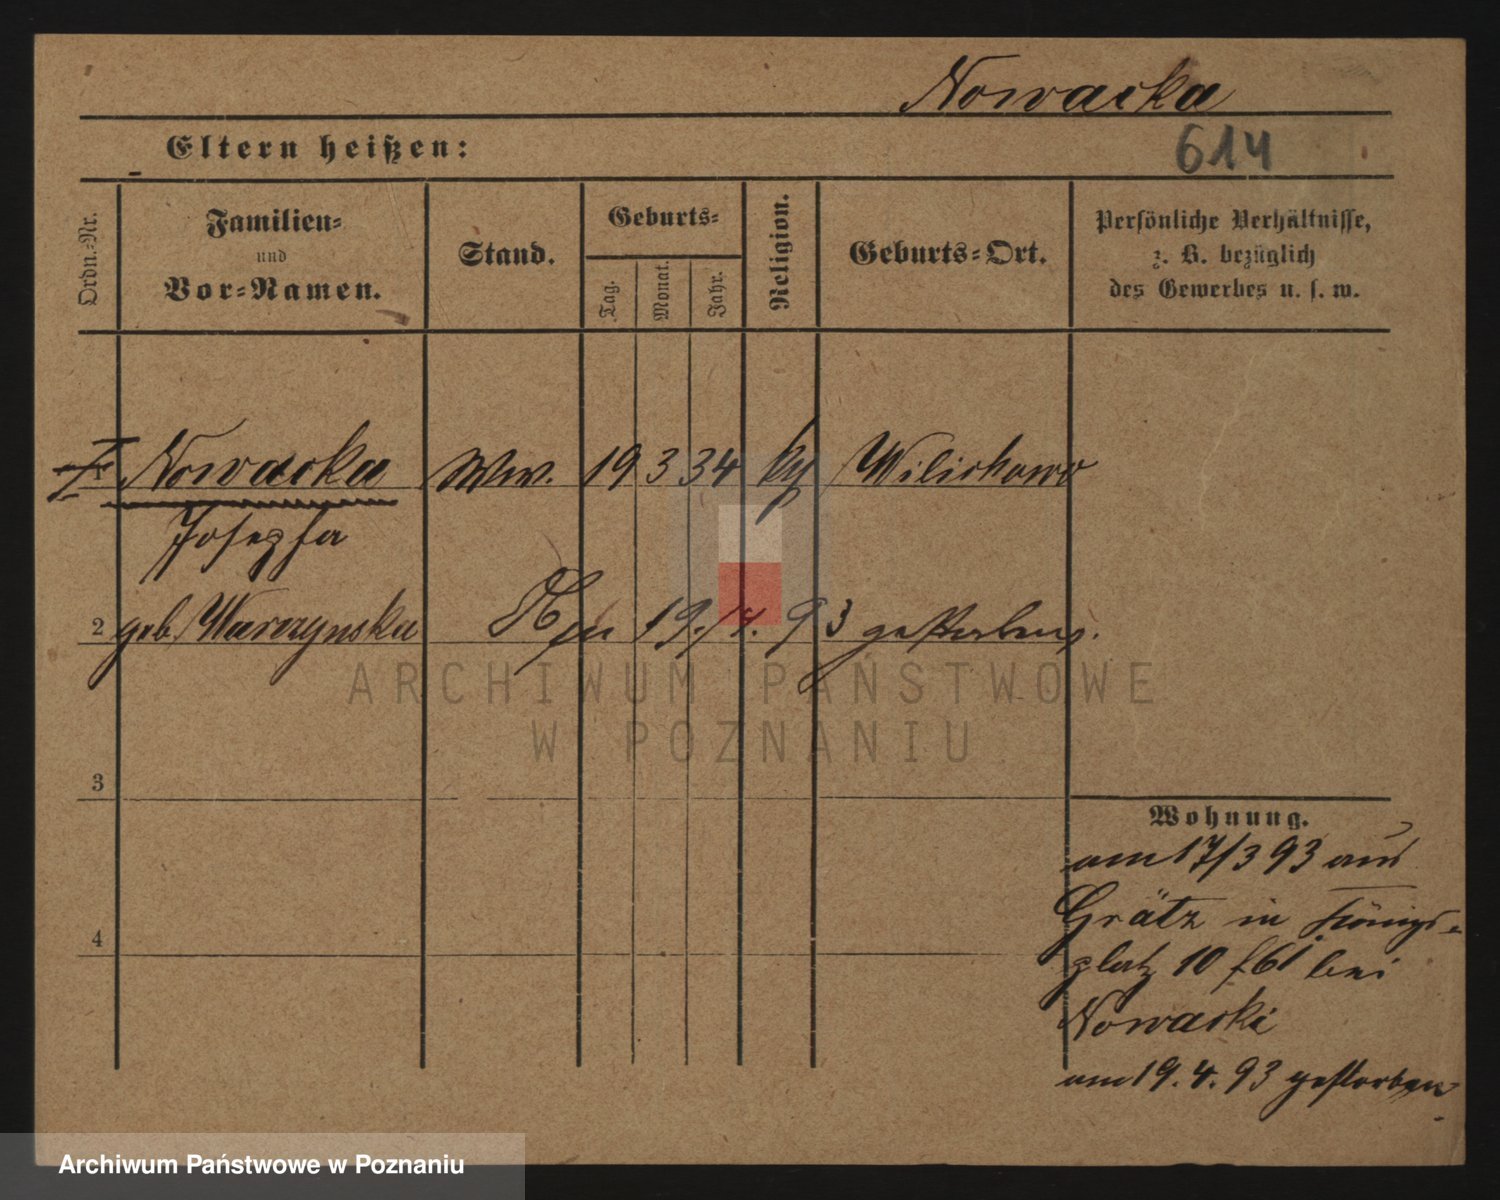 Nowacka
Eltern heißen:
614
Ordn.-Nr.
Familien-
und
Vor-Namen.
Stand.
Geburts-
Tag.
Monat.
Jahr.
Religion.
Geburts-Ort.
Persönliche Verhältnisse,
z. B. bezüglich
des Gewerbes u. s. w.
Nowacka Ww. 19 3 34 Wilichowo
Josepha
2 geb. Wawrzynska 19./4. 93 gestorben.
ARCHIWUM PAŃSTWOWE
W POZNANIU
3
Wohnung.
am 17/3 93 aus
Grätz in Königs-
4
platz 10 bei
Nowacki
am 19. 4. 93 gestorben
Archiwum Państwowe w Poznaniu